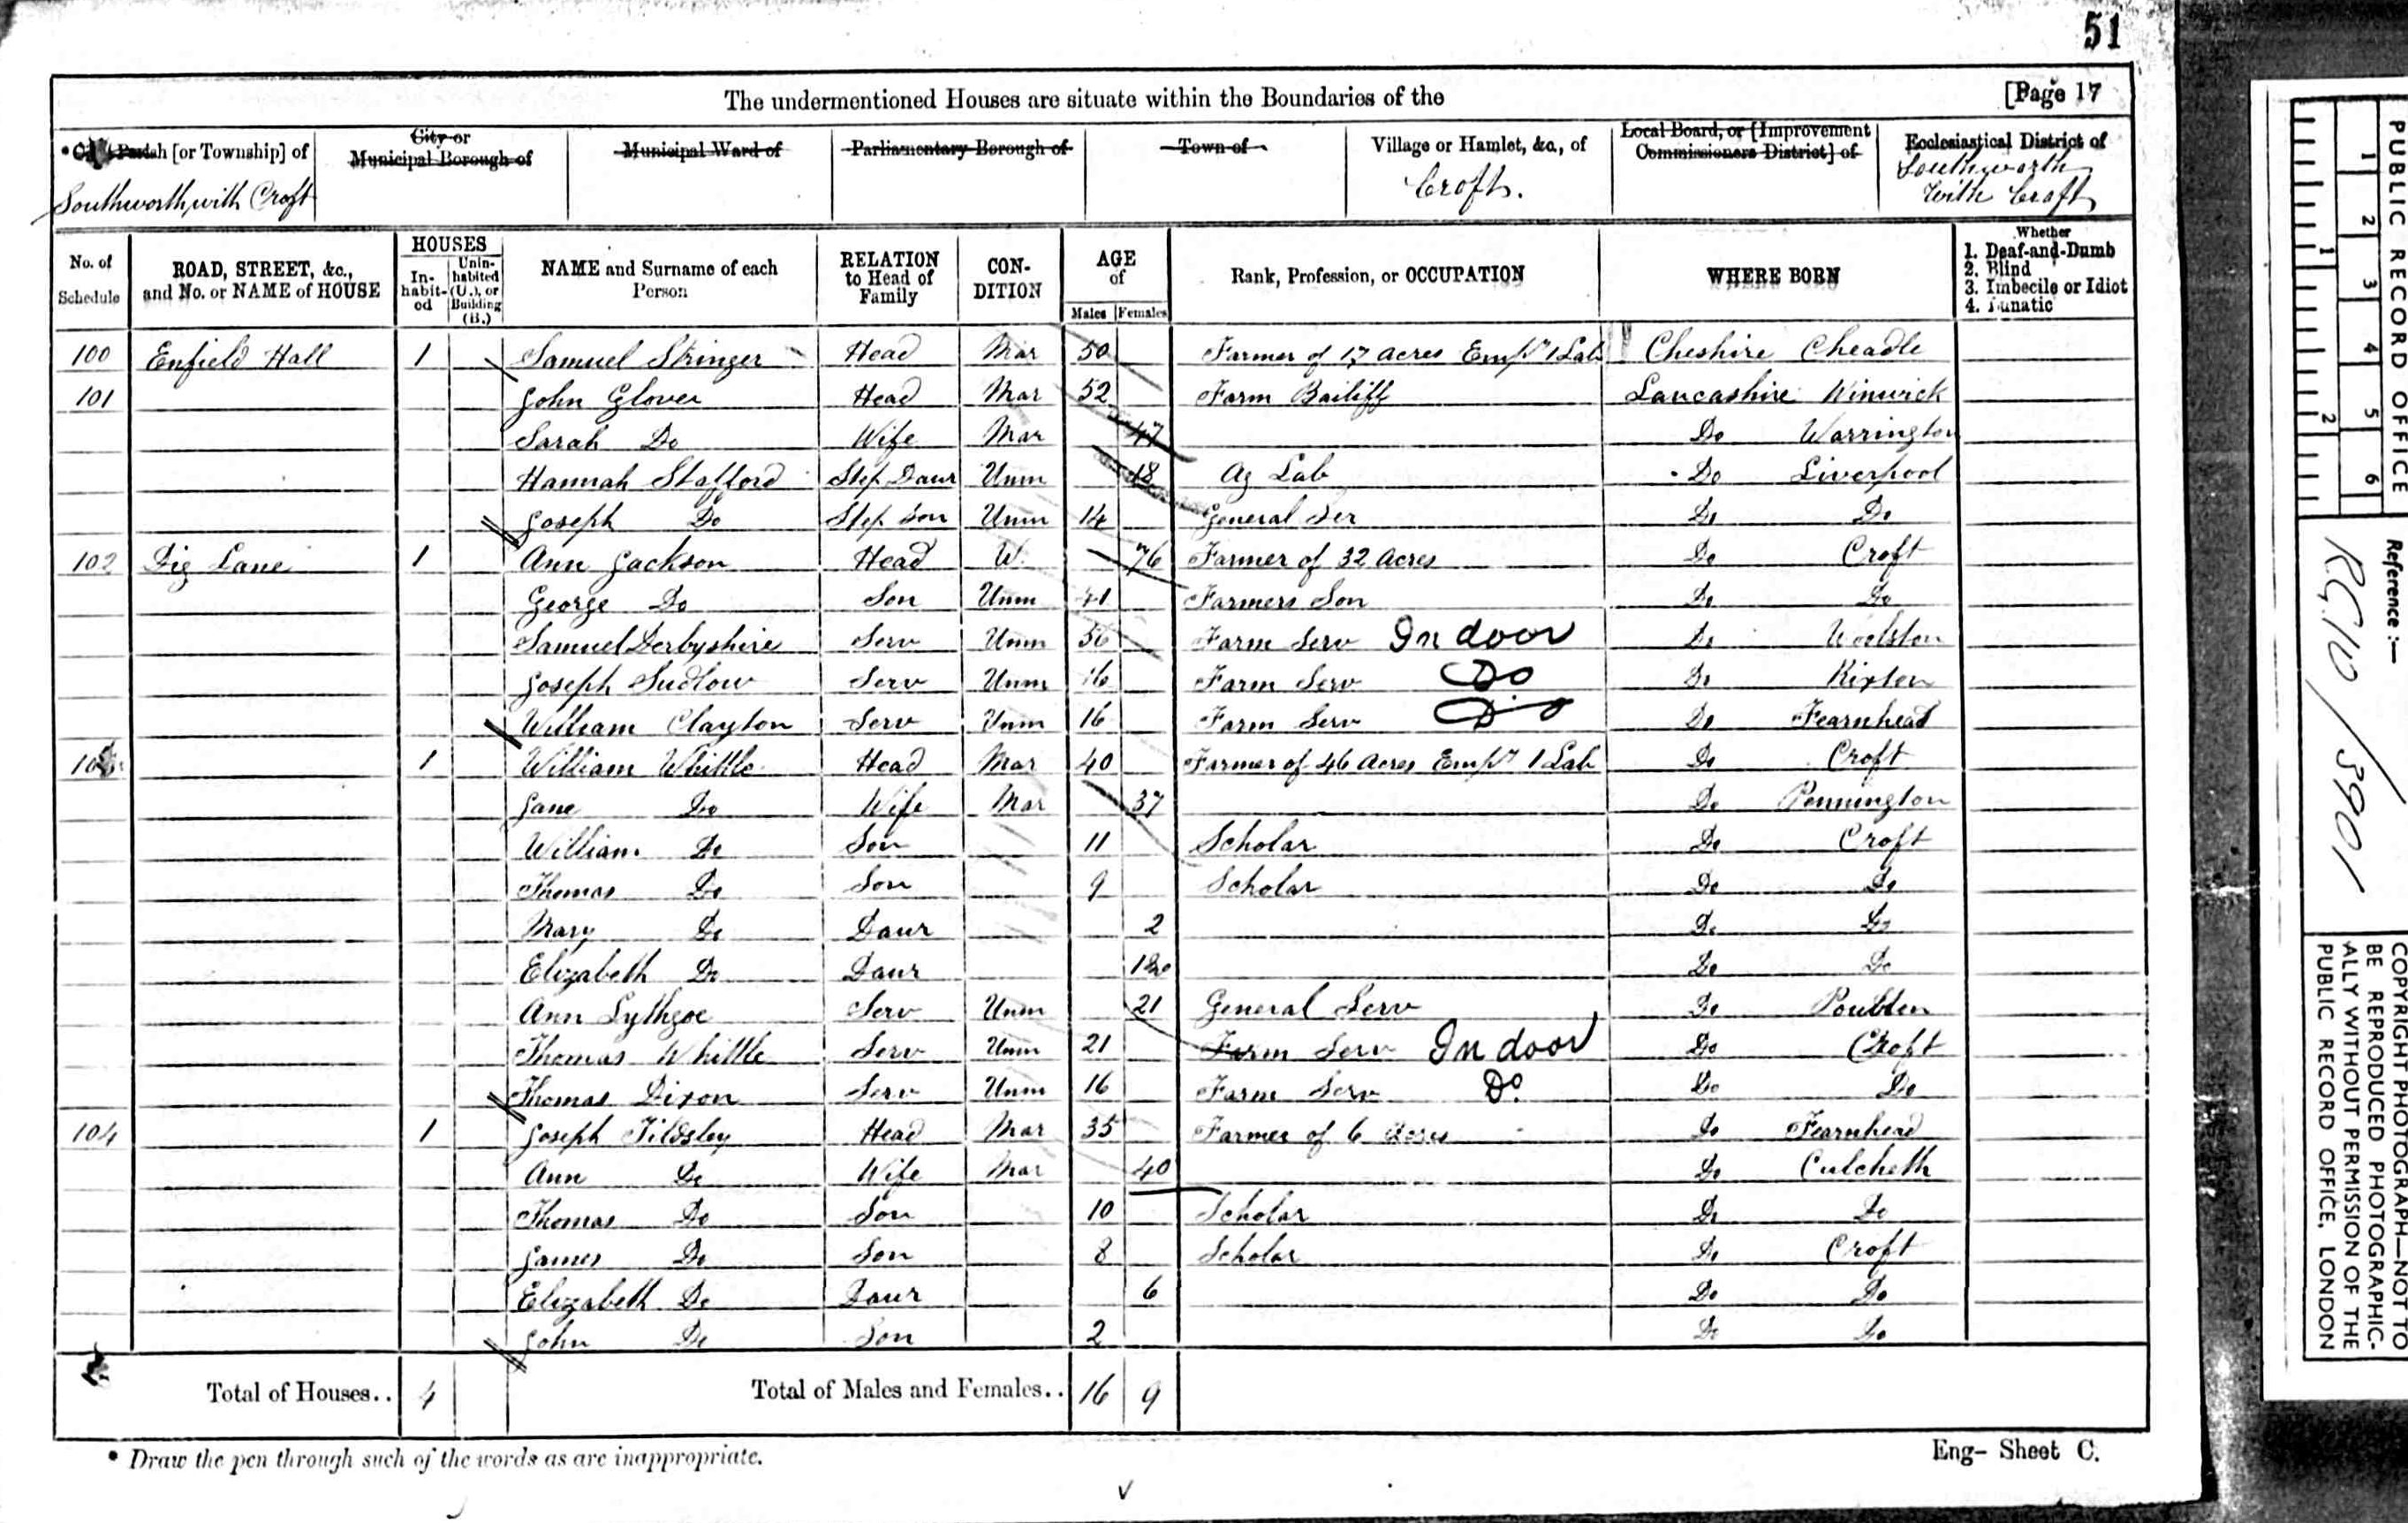 51
The undermentioned Houses are situate within the Boundaries of the [Page 17
Parish [or Township] of
Southworth with Croft
City or Municipal Borough of
Municipal Ward of
Parliamentary Borough of
Town of
Village or Hamlet, &c., of
Croft.
Local Board, or [Improvement Commissioners District] of
Ecclesiastical District of
Southworth With Croft
No. of Schedule
ROAD, STREET, &c., and No. or NAME of HOUSE
HOUSES
In-habit-ed
Unin-habited (U.), or Building (B.)
NAME and Surname of each Person
RELATION to Head of Family
CON-DITION
AGE of
Males Females
Rank, Profession, or OCCUPATION
WHERE BORN
Whether
1. Deaf-and-Dumb
2. Blind
3. Imbecile or Idiot
4. Lunatic
100 Enfield Hall 1 Samuel Stringer Head Mar 50 Farmer of 17 acres Empg 1 Lab Cheshire Cheadle
101 John Glover Head Mar 52 Farm Bailiff Lancashire Winwick
Sarah Do Wife Mar 47 Do Warrington
Hannah Stafford Step Daur Unm 18 Ag Lab Do Liverpool
Joseph Do Step Son Unm 14 General Ser Do Do
102 Dig Lane 1 Ann Jackson Head W. 76 Farmer of 32 acres Do Croft
George Do Son Unm 41 Farmers Son Do Do
Samuel Derbyshire Serv Unm Farm Serv In door Do Woolston
Joseph Sudlow Serv Unm 16 Farm Serv Do Do Rixton
William Clayton Serv Unm 16 Farm Serv Do Do Fearnhead
1 William Whittle Head Mar 40 Farmer of 46 Acres Empg 1 Lab Do Croft
Jane Do Wife Mar 37 Do Pennington
William Do Son 11 Scholar Do Croft
Thomas Do Son 9 Scholar Do Do
Mary Do Daur 2 Do Do
Elizabeth Do Daur Do Do
Ann Lythgoe Serv Unm 21 General Serv Do
Thomas Whittle Serv Unm 21 Farm Serv In door Do Croft
Thomas Dixon Serv Unm 16 Farm Serv Do. Do Do
104 1 Joseph Tildsley Head Mar 35 Farmer of 6 acres Do Fearnhead
Ann Do Wife Mar 40 Do Culcheth
Thomas Do Son 10 Scholar Do Do
James Do Son 8 Scholar Do Croft
Elizabeth Do Daur 6 Do Do
John Do Son 2 Do Do
Total of Houses.. 4 Total of Males and Females.. 16 9
* Draw the pen through such of the words as are inappropriate.
Eng- Sheet C.
PUBLIC RECORD OFFICE
1 2 3 4 5 6
1 2
Reference :—
RG 10 / 3901
COPYRIGHT PHOTOGRAPH—NOT TO
BE REPRODUCED PHOTOGRAPHIC-
ALLY WITHOUT PERMISSION OF THE
PUBLIC RECORD OFFICE, LONDON